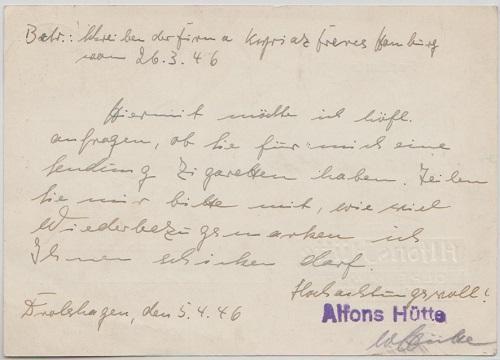 Betr.: Schreiben der Firma Kyriaz freres Hamburg
vom 26.3.46
Hiermit möchte ich höfl.
anfragen, ob Sie für mich eine
Sendung Zigaretten haben. Teilen
Sie mir bitte mit, wie viel
Wiederbezugsmarken ich
Ihnen schicken darf.
Hochachtungsvoll!
Drolshagen, den 5.4.46
Alfons Hütte